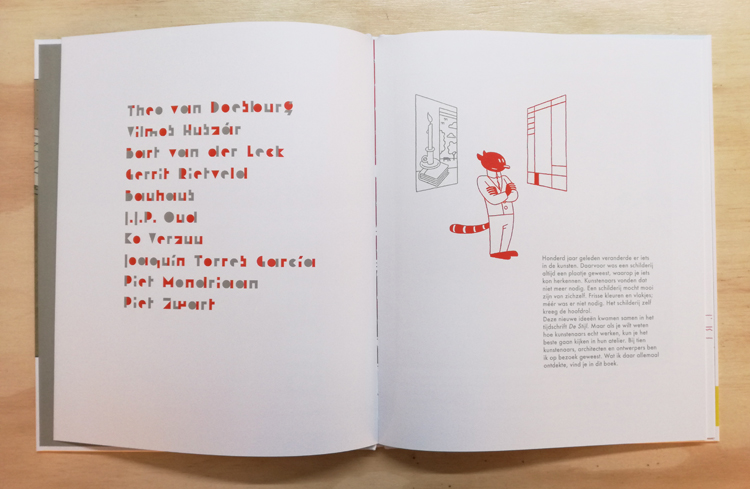 Theo van Doesburg
Vilmos Huszár
Bart van der Leck
Gerrit Rietveld
Bauhaus
J.J.P. Oud
Ko Verzuu
Joaquín Torres García
Piet Mondriaan
Piet Zwart
Honderd jaar geleden veranderde er iets
in de kunsten. Daarvoor was een schilderij
altijd een plaatje geweest, waarop je iets
kon herkennen. Kunstenaars vonden dat
niet meer nodig. Een schilderij mocht mooi
zijn van zichzelf. Frisse kleuren en vlakjes:
méér was er niet nodig. Het schilderij zelf
kreeg de hoofdrol.
Deze nieuwe ideeën kwamen samen in het
tijdschrift De Stijl. Maar als je wilt weten
hoe kunstenaars echt werken, kun je het
beste gaan kijken in hun atelier. Bij tien
kunstenaars, architecten en ontwerpers ben
ik op bezoek geweest. Wat ik daar allemaal
ontdekte, vind je in dit boek.